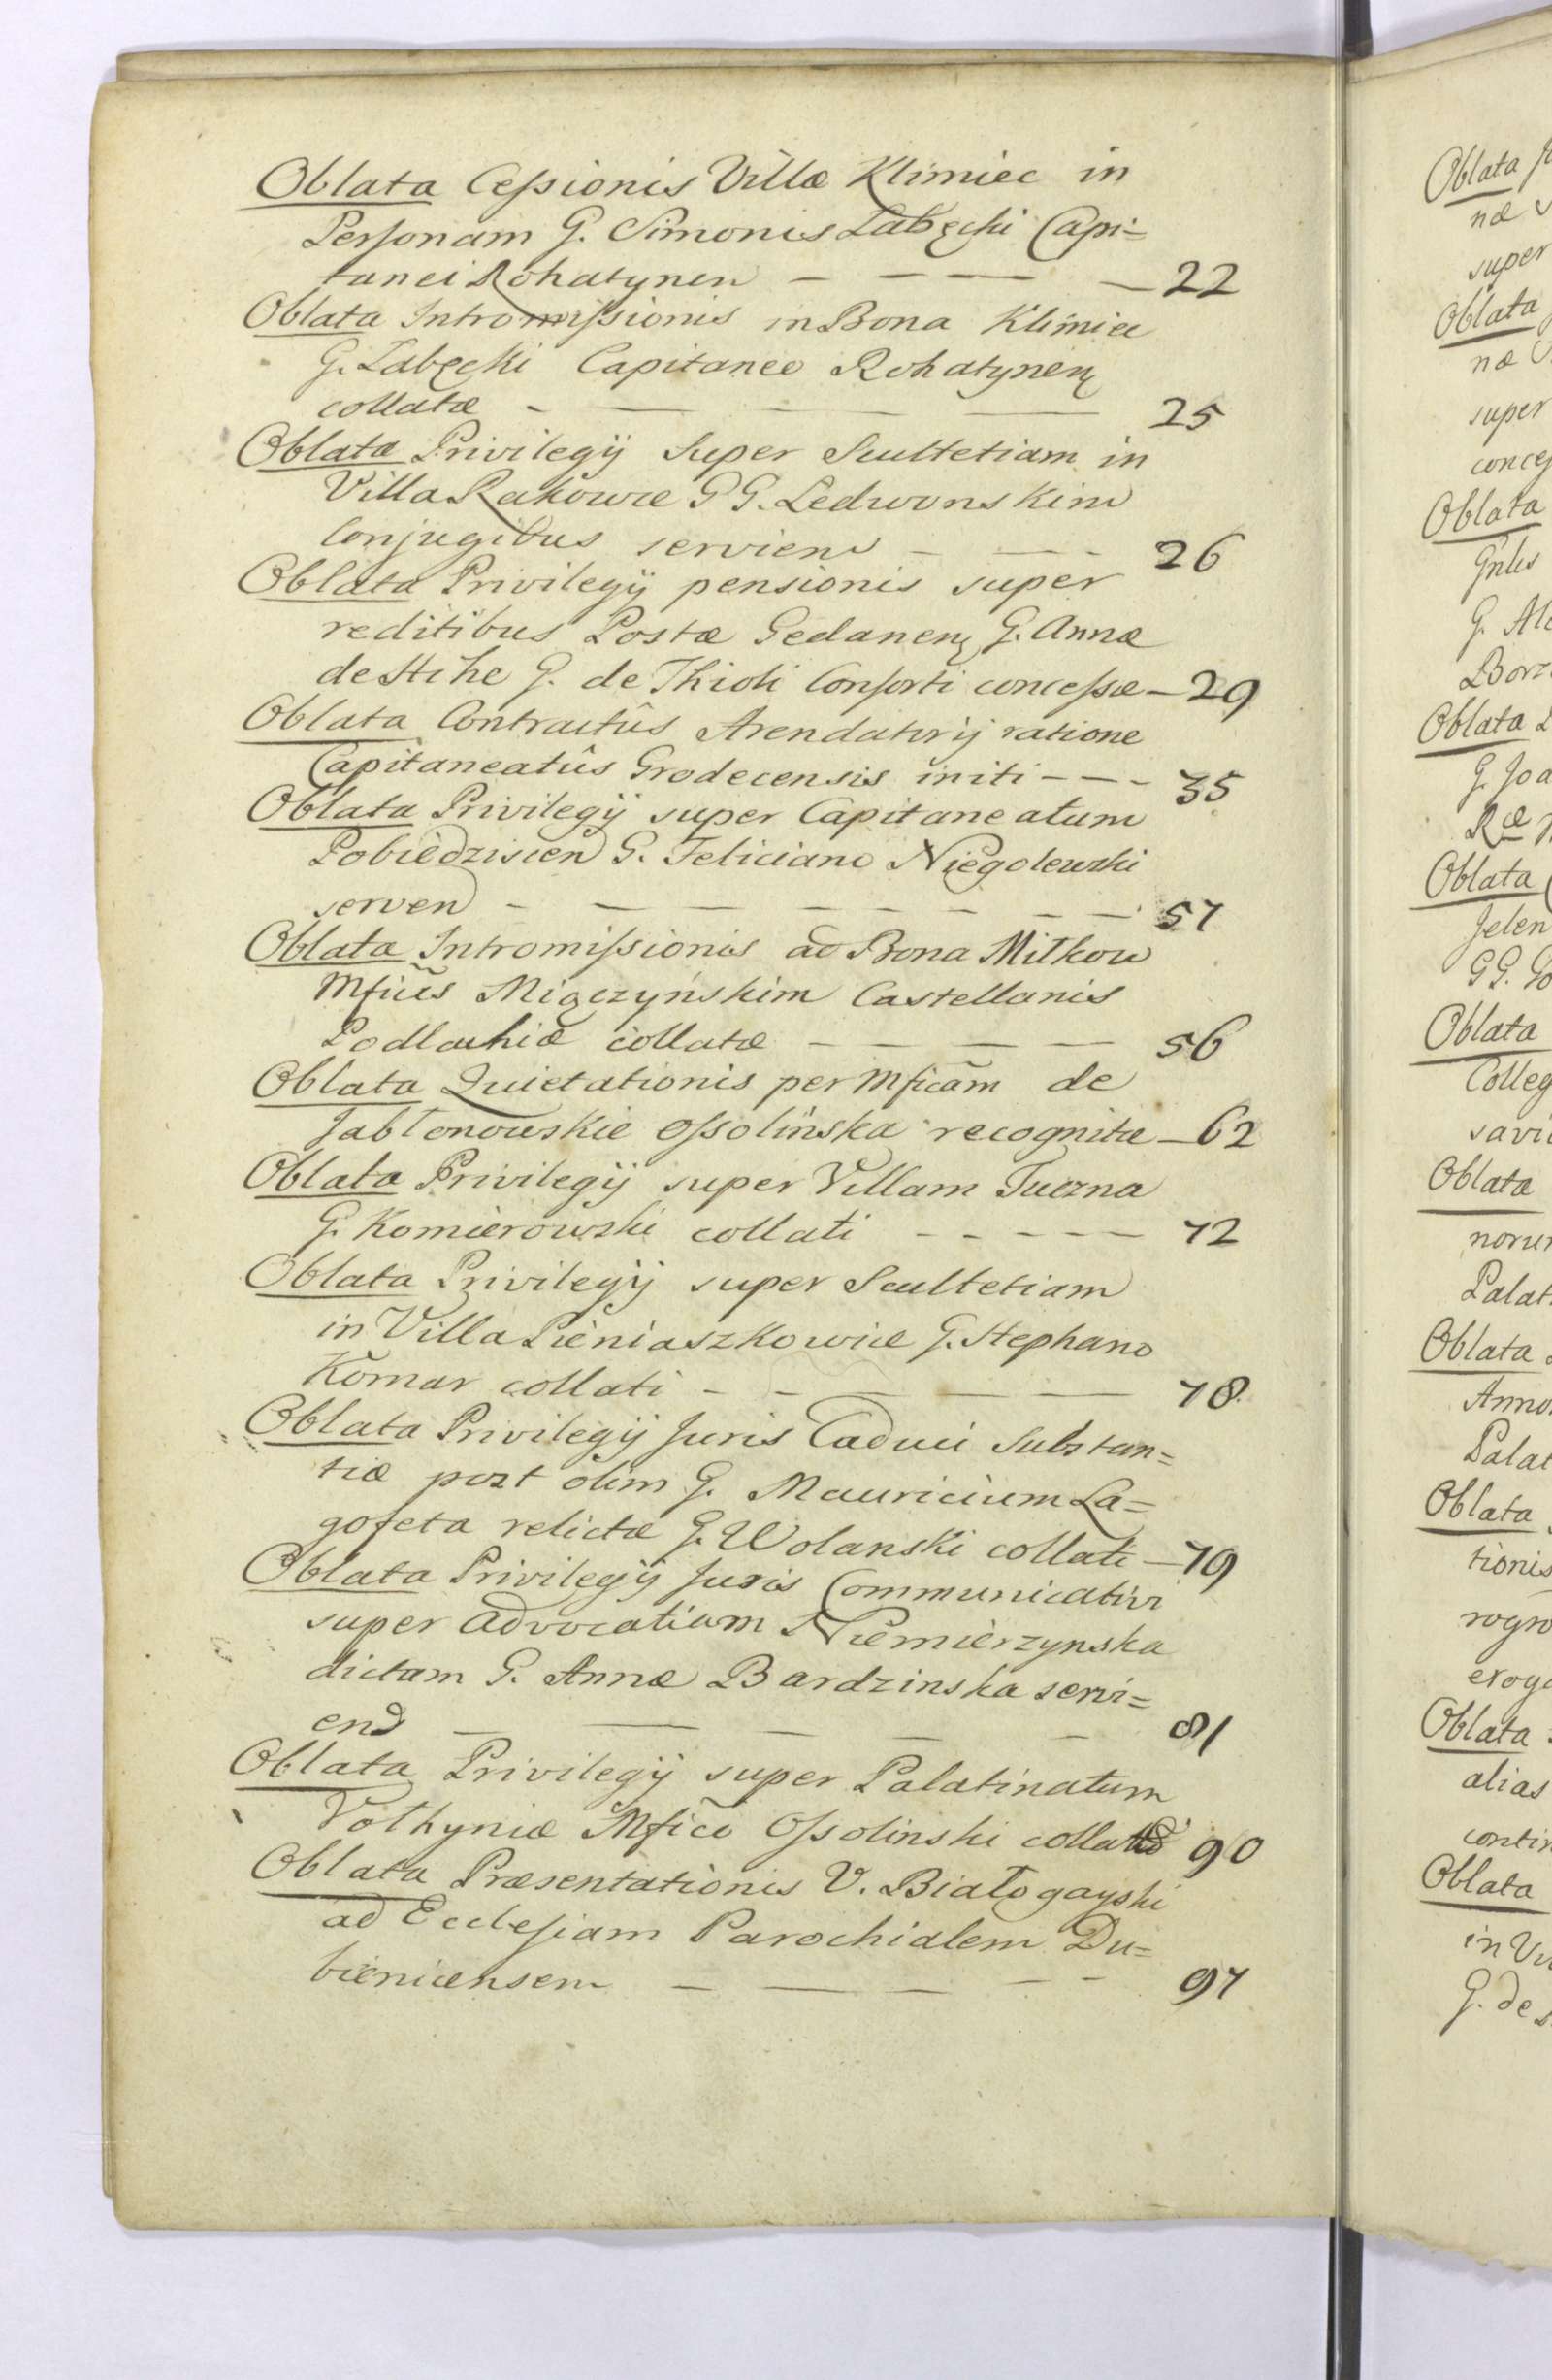 Oblata Cessionis Villæ Klimiec in
Personam G. Simonis Łabęcki Capi=
tanei Rohatynen — — — — 22
Oblata Intromissionis in Bona Klimiec
G. Łabęcki Capitaneo Rohatynen
collatæ - — — — — 25
Oblata Privilegij super Scultetiam in
Villa Rakowce GG. Ledwonskim
Conjugibus servien — — - 26
Oblata Privilegij pensionis super
reditibus Postæ Gedanen G. Annæ
de Hihe G. de Thioli Consorti concessæ — 29
Oblata Contractûs Arendatorij ratione
Capitaneatûs Grodecensis initi - — - 35
Oblata Privilegij super Capitaneatum
Pobiedziscen G. Feliciano Niegolewski
serven - — — — — — — — 51
Oblata Intromissionis ad Bona Miłkow
Mficis Miączyńskim Castellanis
Podlachiæ collatæ — — — — 56
Oblata Quietationis per Mficam de
Jabłonowskie Ossolińska recognitæ — 62
Oblata Privilegij super Villam Tuczna
G. Komierowski collati - - - — — 72
Oblata Privilegij super Scultetiam
in Villa Pieniaszkowice G. Stephano
Komar collati - - — — — 78.
Oblata Privilegij Juris Caduci Substan=
tiæ post olim G. Mauricium La=
gofeta relictæ G. Wolanski collati — 79
Oblata Privilegij Juris Communicativi
super Advocatiam Niemierzynska
dictam G. Annæ Bardzinska servi=
end — — — — - 81
Oblata Privilegij super Palatinatum
Volhyniæ Mfico Ossolinski collato 90
Oblata Præsentationis V. Białogayski
ad Ecclesiam Parochialem Du=
bieniecensem — — — — - 97
Oblata
næ
super
Oblata
næ
super
Oblata
G. Al
Oblata
G. Joa
Oblata
Jelen
GG. Go
Oblata
Colleg
Oblata
Palat
Oblata
Anno
Palat
Oblata
tionis
Oblata
alias
contin
Oblata
G. de